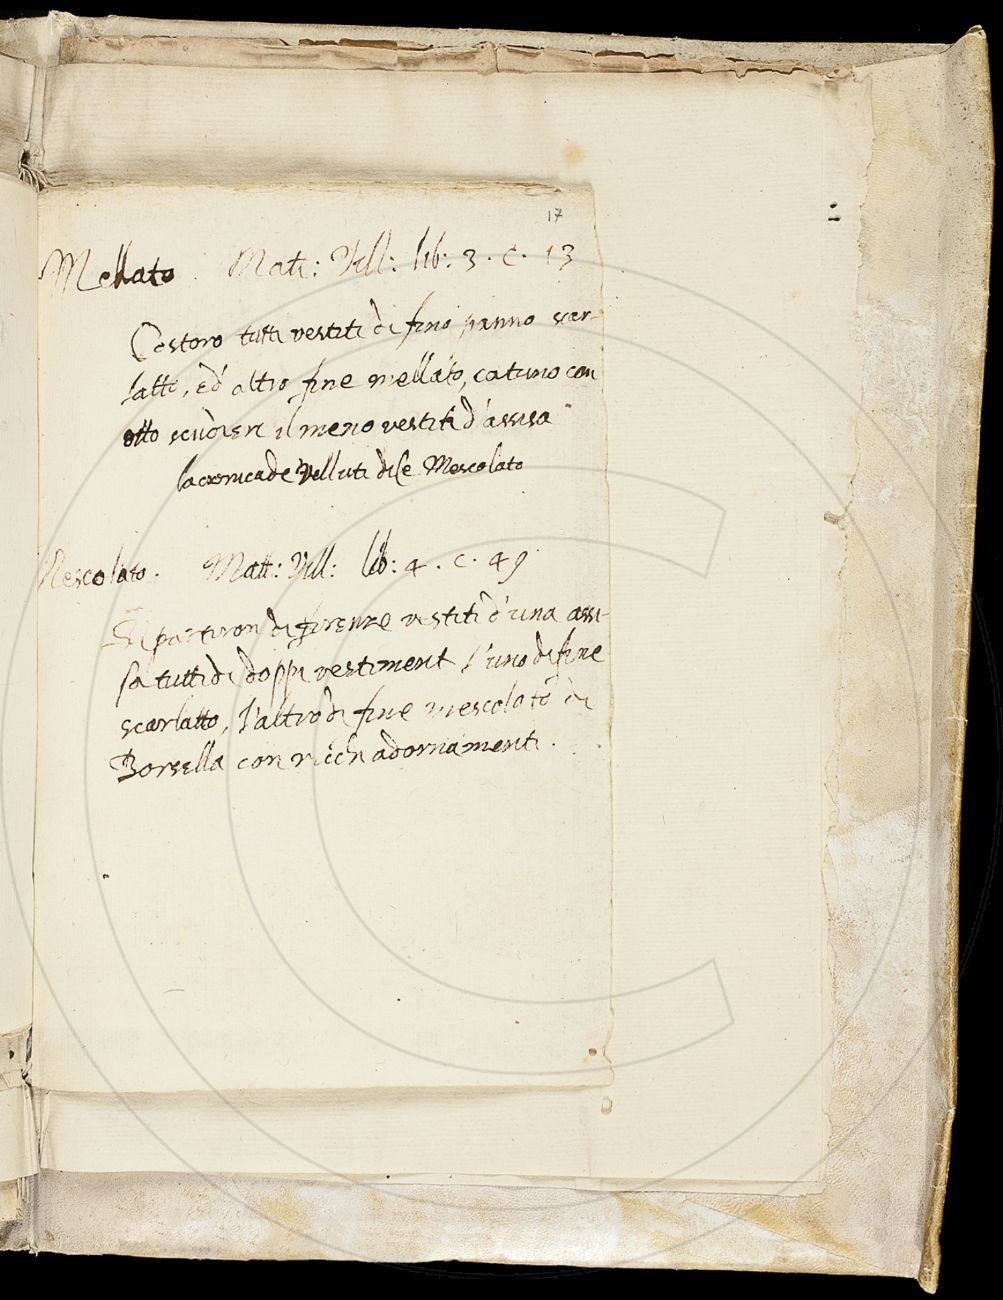 17
Mellato. Matt: Vill: lib: 3. C. 13
Costoro tutti vestiti di fino panno scar-
latto, ed altro fine mellato, catuno con
otto scudieri il meno vestiti d'assisa
la cronica de Velluti dice Mescolato
Mescolato. Matt: Vill: lib: 4. C. 49
Si partiron di firenze vestiti d'una assi-
sa tutti di doppi vestimenti l'uno di fine
scarlatto, l'altro di fine mescolato di
Borsella con ricchi adornamenti.